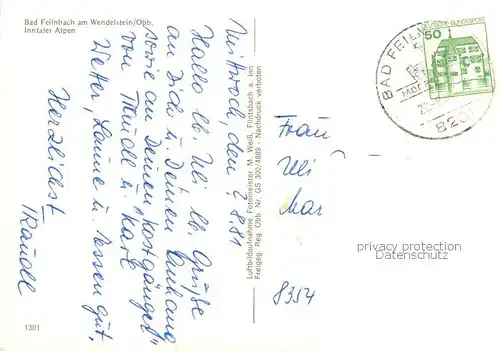 Bad Feilnbach am Wendelstein/Obb.
Inntaler Alpen
Mittwoch, den 2.8.81
Hallo lb. Uli lb. Grüße
an Dich u. Deinen Anhang
sowie an Deinen "Kostgänger"
von Traudl u. Karl
Wetter, Laune u. Essen gut.
Herzlichst
Traudl
1301
Luftbildaufnahme Fotomeister M. Weiß, Flintsbach a. Inn
Freigeg. Reg. Obb. Nr. GS 300/4889 - Nachdruck verboten
Frau
Uli
Mai
8354
DEUTSCHE BUNDESPOST
50
BAD FEIL
820
privacy protection
Datenschutz